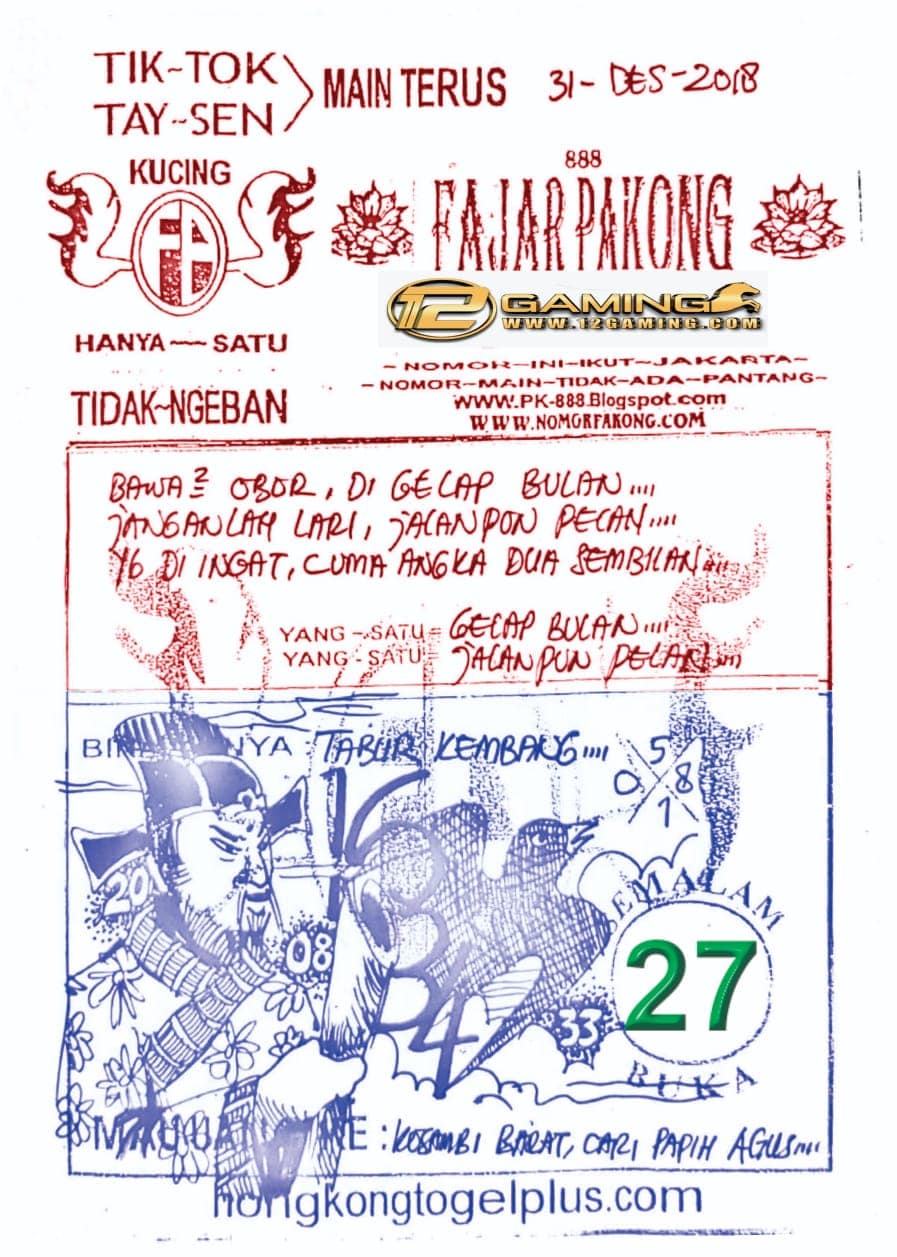 TIK~TOK
TAY~SEN
MAIN TERUS
31-DES-2018
KUCING
888
FAJAR PAKONG
12 GAMING
WWW.12GAMING.COM
HANYA~SATU
~NOMOR-INI-IKUT-JAKARTA~
~NOMOR-MAIN-TIDAK-ADA-PANTANG~
TIDAK~NGEBAN
WWW.PK-888.Blogspot.com
WWW.NOMORPAKONG.COM
BAWA2 OBOR, DI GELAP BULAN....
JANGANLAH LARI, JALANPUN PELAN....
YG DI INGAT, CUMA ANGKA DUA SEMBILAN....
YANG-SATU= GELAP BULAN....
YANG-SATU= JALANPUN PELARI....
TABUR KEMBANG....
5
0 8
1
20
08
33
SEMALAM
27
BUKA
: KOSAMBI BARAT, CARI PAPIH AGUS....
hongkongtogelplus.com